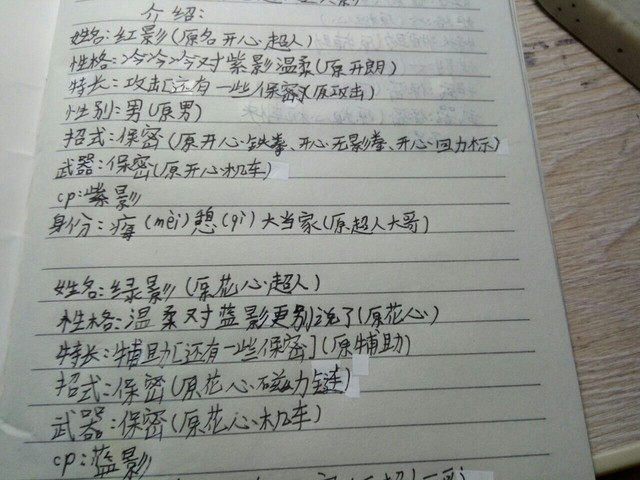 介绍:
姓名:红影(原名开心超人)
性格:冷冷冷对紫影温柔(原开朗)
特长:攻击[还有一些保密](原攻击)
性别:男(原男)
招式:保密(原开心铁拳、开心无影拳、开心回力标)
武器:保密(原开心机车)
cp:紫影
身份:痗(mèi)憩(qì)大当家(原超人大哥)
姓名:绿影(原花心超人)
性格:温柔对蓝影更别说了(原花心)
特长:辅助[还有一些保密](原辅助)
招式:保密(原花心磁力链)
武器:保密(原花心机车)
cp:蓝影